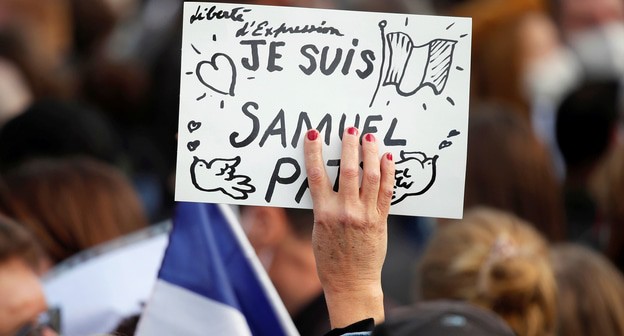 Liberté
d'Expression
JE SUIS
SAMUEL
PAT